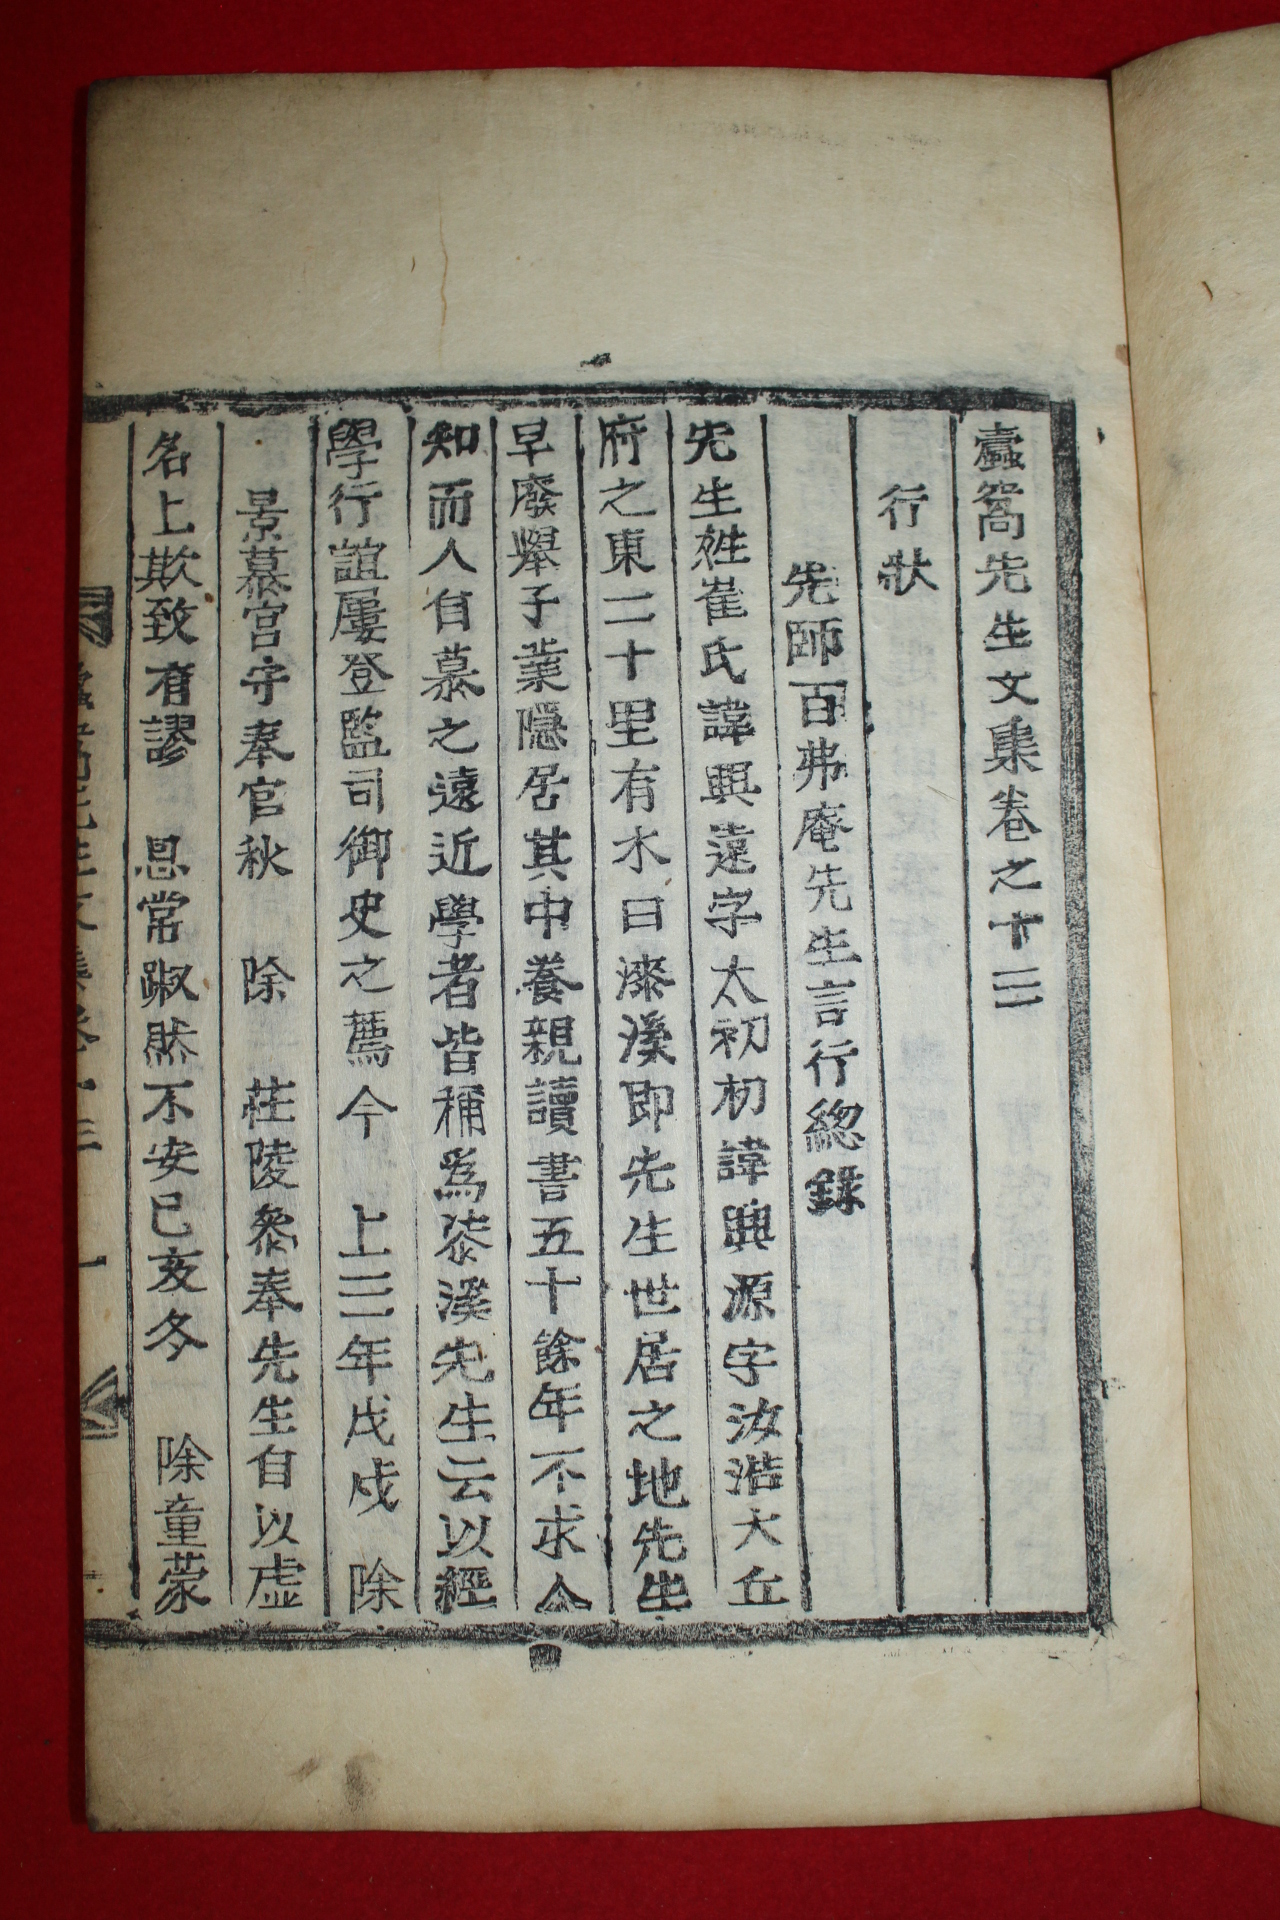 蠹窩先生文集卷之十三
行狀
先師百弗庵先生言行總錄
先生姓崔氏諱興遠字太初初諱興源字汝浩大丘
府之東二十里有水曰漆溪即先生世居之地先生
早廢舉子業隱居其中養親讀書五十餘年不求人
知而人自慕之遠近學者皆稱爲漆溪先生云以經
學行誼屢登監司御史之薦今 上三年戊戌 除
景慕宮守奉官秋 除 莊陵參奉先生自以虛
名上欺致有謬 恩常踧然不安己亥冬 除童蒙
蠹窩先生文集卷十三 一